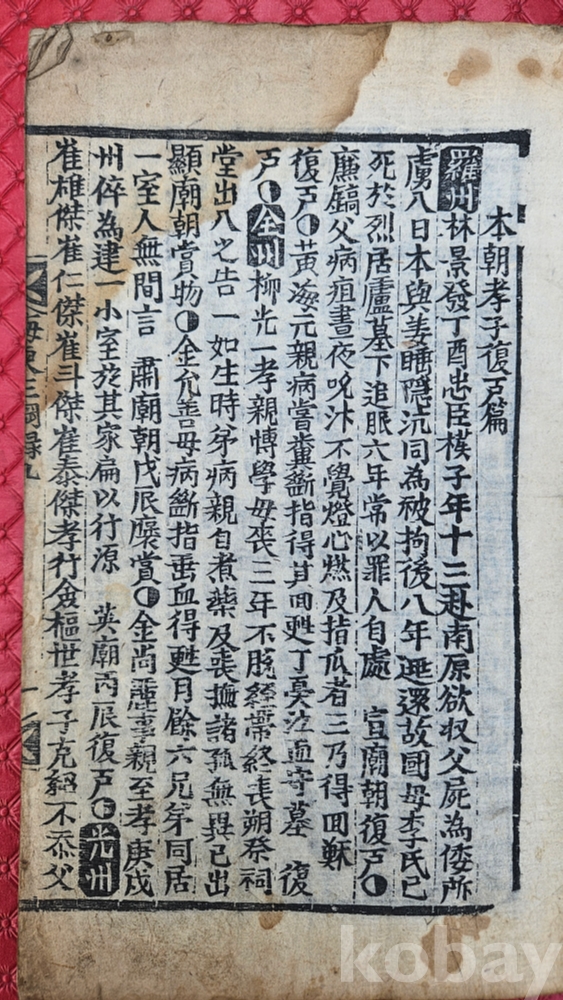 本朝孝子復戶篇
羅州林景發丁酉忠臣樸子年十三赴南原欲収父屍為倭所
虜入日本與姜睡隱沆同為被拘後八年逃還故國母李氏已
死於烈居廬墓下追服六年常以罪人自處 宣廟朝復戶
廉鎬父病疽晝夜吮汁不覺燈心燃及指爪者三乃得回穌
復戶 黃海元親病嘗糞斷指得甚回甦丁憂泣血守墓 復
戶 全州柳光一孝親博學母喪三年不脫絰帶終喪朔祭祠
堂出入之告一如生時弟病親自煮藥及喪撫諸孤無異已出
顯廟朝賞物 金允善母病斷指垂血得甦月餘六兄弟同居
一室人無間言 肅廟朝戊辰廩賞 金尚 事親至孝庚戌
州倅為建一小室於其家扁以行源 英廟丙辰復戶 光州
崔椎傑崔仁傑崔斗傑崔泰傑孝行僉樞世孝子克紹不忝父
海東三綱錄九
一
kobay